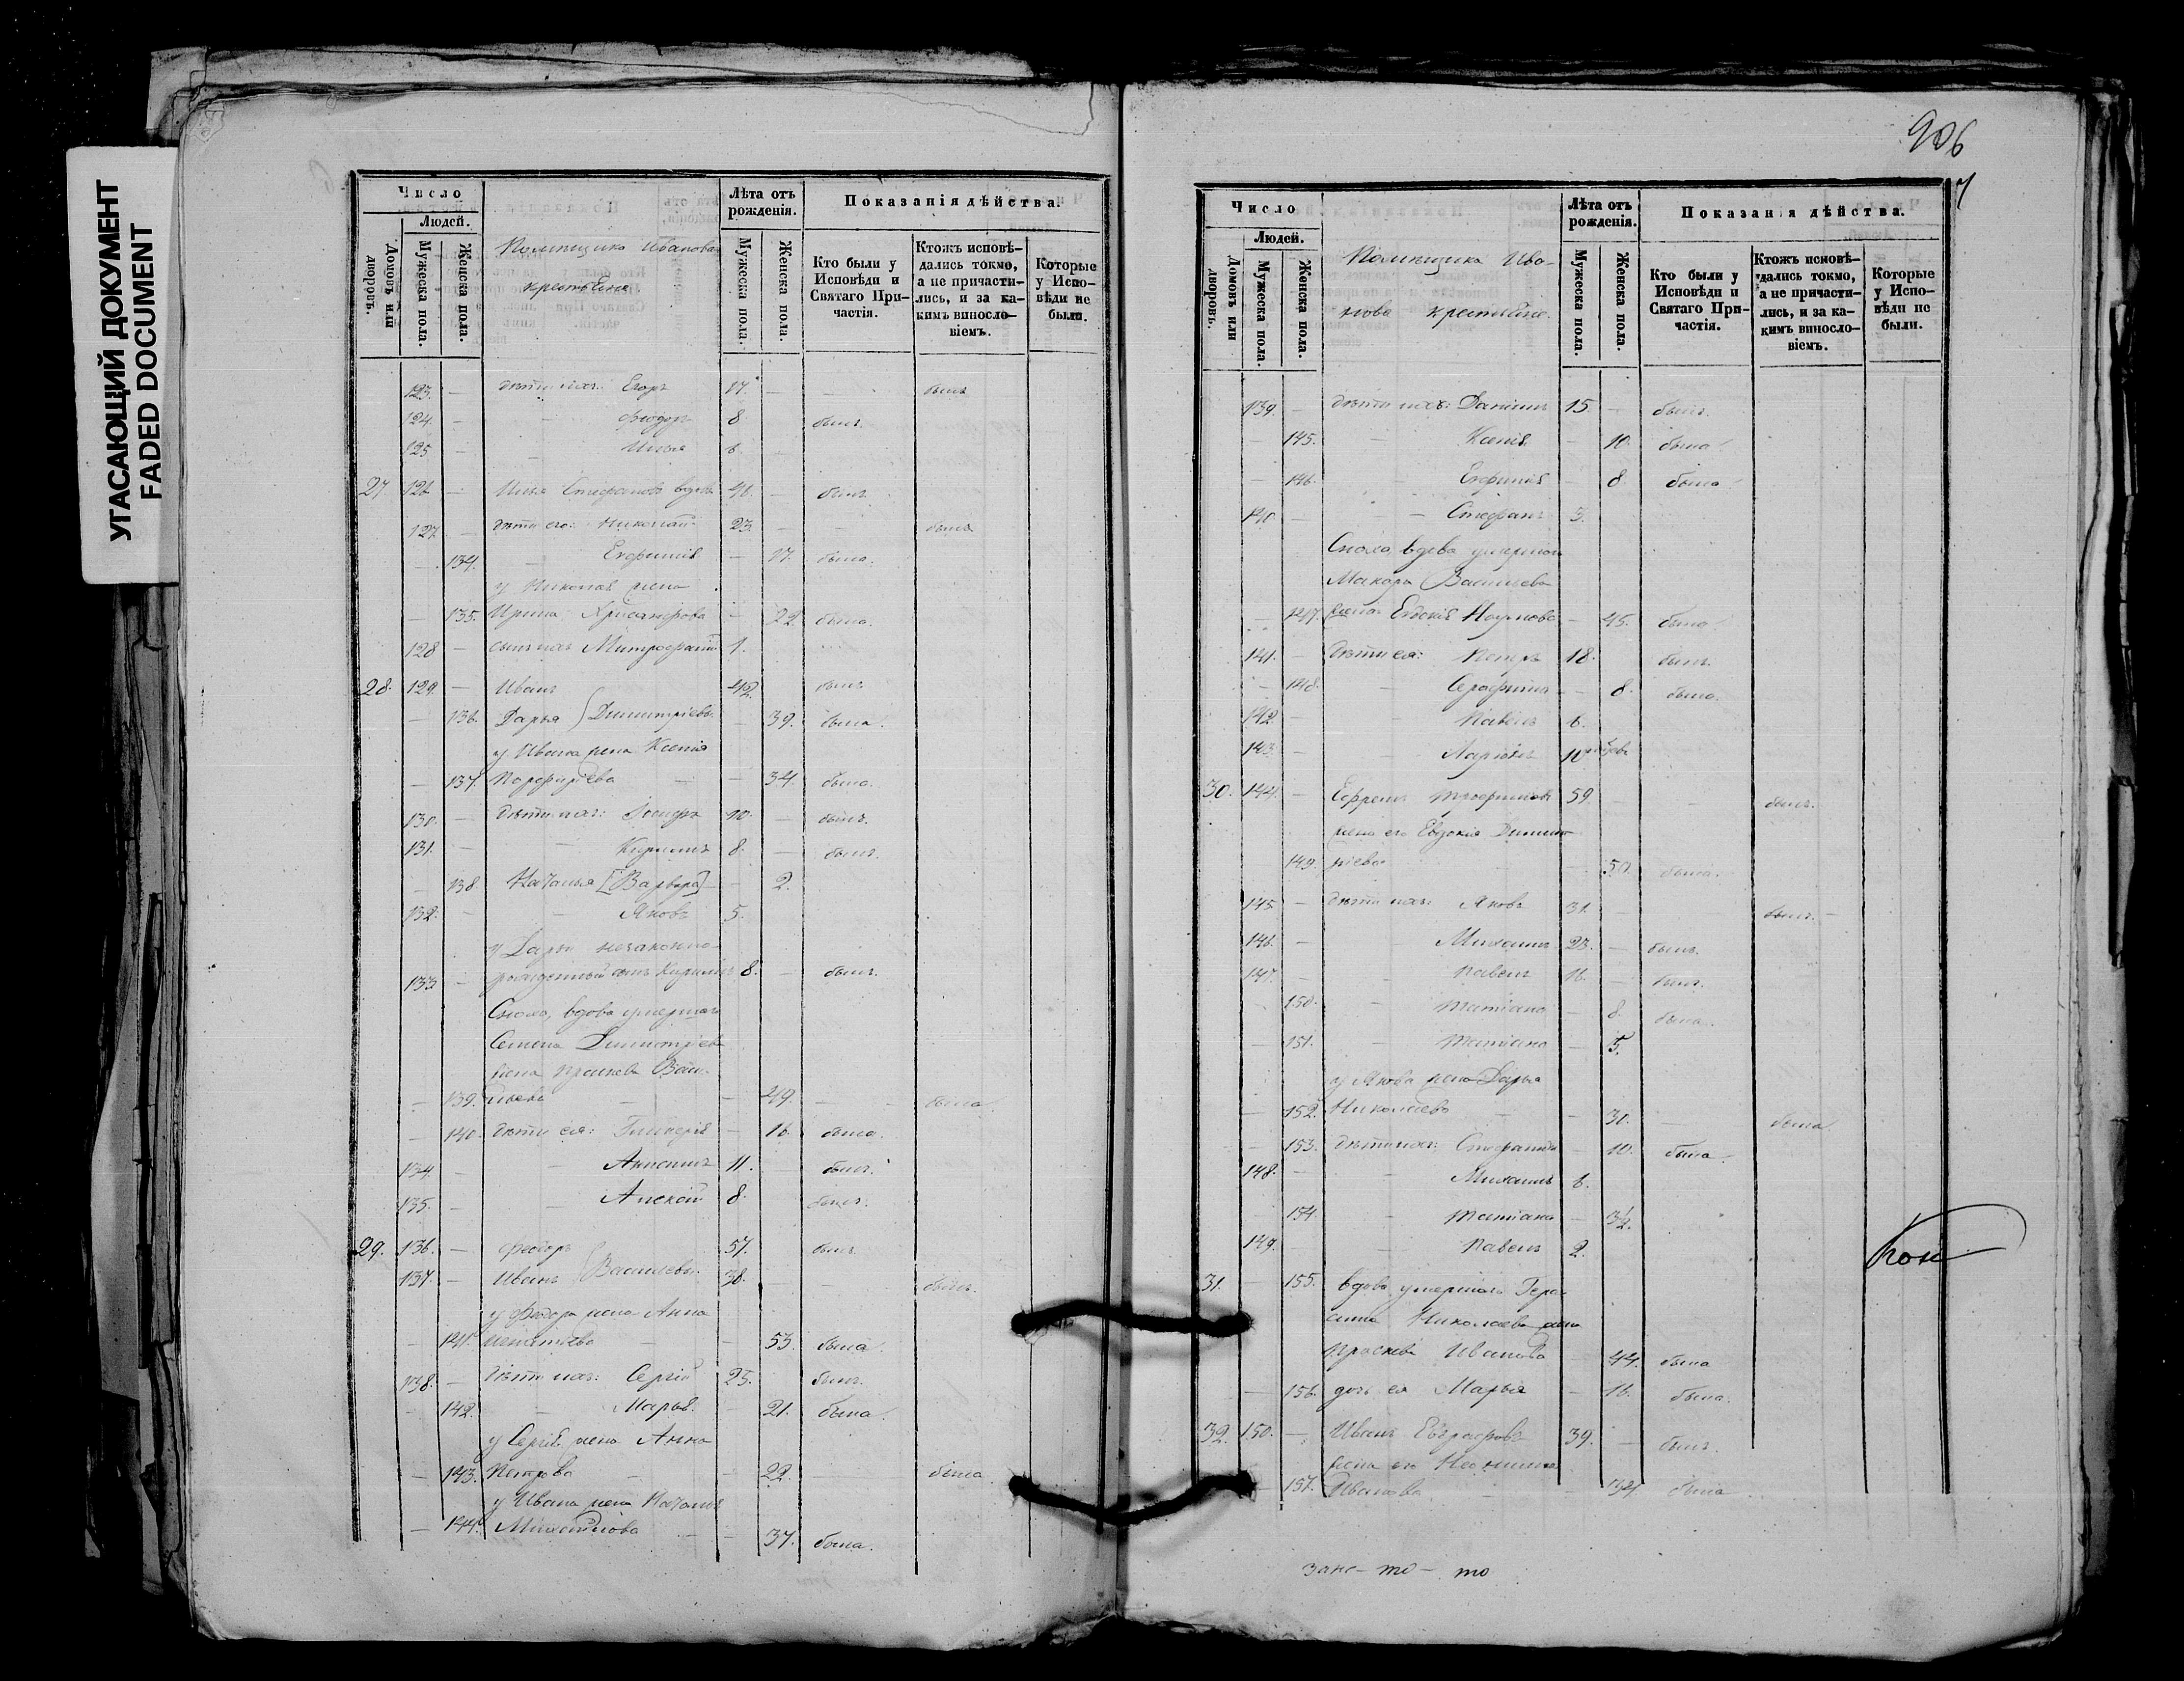 УГАСАЮЩИЙ ДОКУМЕНТ
FADED DOCUMENT
Число
Людей.
Домовъ или дворовъ.
Мужеска пола.
Женска пола.
крестьяне
Лѣта отъ рожденія.
Мужеска пола.
Женска пола.
Показанія дѣйства.
Кто были у Исповѣди и Святаго Причастія.
Ктожъ исповѣдались токмо, а не причастились, и за какимъ винословіемъ.
Которые у Исповѣди не были.
123. — дѣти ихъ: Егоръ 17. — — былъ
124. — — Ѳеодоръ 8 былъ.
125. — — Илья 6.
27. 126. — Илья Стефановъ вдовъ 46. — былъ.
127. — дѣти его: Николай 23. — — былъ
— 134. — Евфимія — 17. была.
у Николая жена
— 135. Ирина Хрисанфова — 22. была.
128 — сынъ ихъ Митрофанъ 1.
28. 129. — Иванъ 42. былъ
— 136. Дарья } Димитріевы — 39. была.
у Ивана жена Ксенія
— 137. Порфирьева — — 34. была.
130. — дѣти ихъ: Іосифъ 10. — былъ.
131. — — Кириллъ 8. — былъ.
— 138. Наталья [Варвара] — 2.
132. — — Яковъ 5.
у Дарьи незаконно-
133 — рожденный сынъ Кириллъ 8. — былъ.
Сноха, вдова умершаго
Семена Димитріева
жена
— 139. — — 49. — была
— 140. дѣти ея: Гликерія — 16. была.
134. — — 11. — былъ.
135. — — Алексѣй 8. былъ.
29. 136. — Ѳеодоръ 57. былъ
137. — Иванъ } Васильевы 38. — — былъ.
у Ѳеодора жена Анна
— 141. — — 53. была.
138. — дѣти ихъ: Сергій 25. былъ.
— 142. — Марья. — 21. была.
у Сергія жена Анна
— 143. Петрова — — 22. была
у Ивана жена Наталья
— 144. Михайлова — — 37. была.
906
7
Число
Людей.
Домовъ или дворовъ.
Мужеска пола.
Женска пола.
Помѣщика Ива-
нова крестьяне.
Лѣта отъ рожденія.
Мужеска пола.
Женска пола.
Показанія дѣйства.
Кто были у Исповѣди и Святаго Причастія.
Ктожъ исповѣдались токмо, а не причастились, и за какимъ винословіемъ.
Которые у Исповѣди не были.
139. — дѣти ихъ: Даніилъ 15 — былъ.
— 145. — Ксенія — 10. была.
— 146. — Евфимія — 8. была.
140. — — Стефанъ 3.
Сноха, вдова умершаго
Макара Васильева
— 147. жена Евдокія Наумова — 45. была.
141. — дѣти ея: Петръ 18. былъ.
— 148. — Серафима — 8. была.
142. — Павелъ 6.
143. — —
30. 144. — Ефремъ Трофимовъ 59. — — былъ.
жена его Евдокія Димит-
149. ріева — 50. была.
145. — дѣти ихъ: Яковъ 31. — — былъ. —
146. — Михаилъ 23. — былъ.
147. — Павелъ 16. — былъ.
— 150. — Татіана — 8. была.
— 151. — Татіана — 5.
у Якова жена Дарья
— 152. Николаева — — 30. — была.
— 153. дѣти ихъ: Стефанида — 10. была.
148. — — Михаилъ 6.
— 154. — Татіана — 3½.
149. — — Павелъ 2.
31. — 155. вдова умершаго Гера-
сима Николаева жена
Ивановна 44. была
— 156. дочь ея Марья — 16. была.
32. 150. — Иванъ Евграфовъ 39. — былъ.
жена его
— 157. Иванова — — была